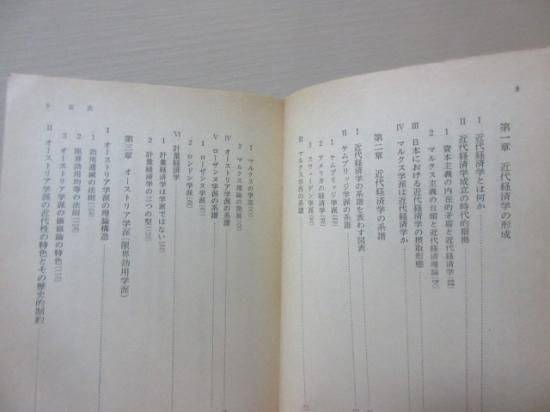 8
第一章 近代経済学の形成
I 近代経済学とは何か
II 近代経済学成立の時代的根拠
1 資本主義の内在的矛盾と近代経済学
2 マルクス主義の台頭と近代経済理論
III 日本における近代経済学の摂取形態
IV マルクス学派は近代経済学か
第二章 近代経済学の系譜
I 近代経済学の系譜を表わす図表
II ケムブリッジ学派の系譜
1 ケムブリッジ学派
2 アメリカの経済学
3 スウェーデン学派
III マルクス学派の系譜
9 目次
1 マルクスの学派
2 マルクス理論の発展
IV オーストリア学派の系譜
V ローザンヌ学派の系譜
1 ローザンヌ学派
2 ロンドン学派
VI 計量経済学
1 計量経済学は学派ではない
2 計量経済学の二つの型
第三章 オーストリア学派(限界効用学派)
I オーストリア学派の理論構造
1 効用逓減の法則
2 限界効用均等の法則
3 オーストリア学派の価値論の特色
II オーストリア学派の近代性の特色とその歴史的制約